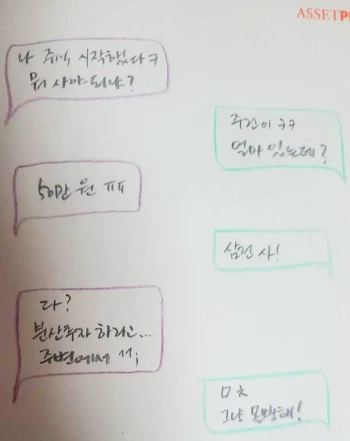 ASSETP
나 주식 시작했다ㅋ
뭐 사야되냐?
주린이 ㅋㅋ
얼마 있는데?
50만 원 ㅠㅠ
삼전 사!
다?
분산투자 하라고....
주변에서 ;;
ㅁㅊ
그냥 몰빵해!